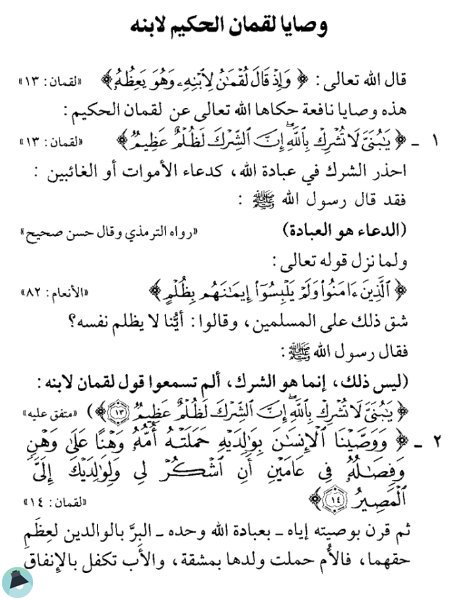 وصايا لقمان الحكيم لابنه
قال الله تعالى : ﴿ وَإِذْ قَالَ لُقْمَٰنُ لِابْنِهِۦ وَهُوَ يَعِظُهُۥ ﴾ «لقمان : ١٣»
هذه وصايا نافعة حكاها الله تعالى عن لقمان الحكيم :
١ ـ ﴿ يَٰبُنَىَّ لَا تُشْرِكْ بِٱللَّهِ إِنَّ ٱلشِّرْكَ لَظُلْمٌ عَظِيمٌ ﴾ «لقمان : ١٣»
احذر الشرك في عبادة الله، كدعاء الأموات أو الغائبين :
فقد قال رسول الله ﷺ :
(الدعاء هو العبادة) «رواه الترمذي وقال حسن صحيح»
ولما نزل قوله تعالى :
﴿ ٱلَّذِينَ ءَامَنُوا۟ وَلَمْ يَلْبِسُوٓا۟ إِيمَٰنَهُم بِظُلْمٍ ﴾ «الأنعام : ٨٢»
شق ذلك على المسلمين، وقالوا : أيُّنا لا يظلم نفسه؟
فقال رسول الله ﷺ :
(ليس ذلك، إنما هو الشرك، ألم تسمعوا قول لقمان لابنه :
﴿ يَٰبُنَىَّ لَا تُشْرِكْ بِٱللَّهِ إِنَّ ٱلشِّرْكَ لَظُلْمٌ عَظِيمٌ ١٣ ﴾) «متفق عليه»
٢ ـ ﴿ وَوَصَّيْنَا ٱلْإِنسَٰنَ بِوَٰلِدَيْهِ حَمَلَتْهُ أُمُّهُۥ وَهْنًا عَلَىٰ وَهْنٍ
وَفِصَٰلُهُۥ فِى عَامَيْنِ أَنِ ٱشْكُرْ لِى وَلِوَٰلِدَيْكَ إِلَىَّ
ٱلْمَصِيرُ ١٤ ﴾ «لقمان : ١٤»
ثم قرن بوصيته إياه ـ بعبادة الله وحده ـ البرَّ بالوالدين لعِظَمِ
حقهما، فالأم حملت ولدها بمشقة، والأب تكفل بالإنفاق